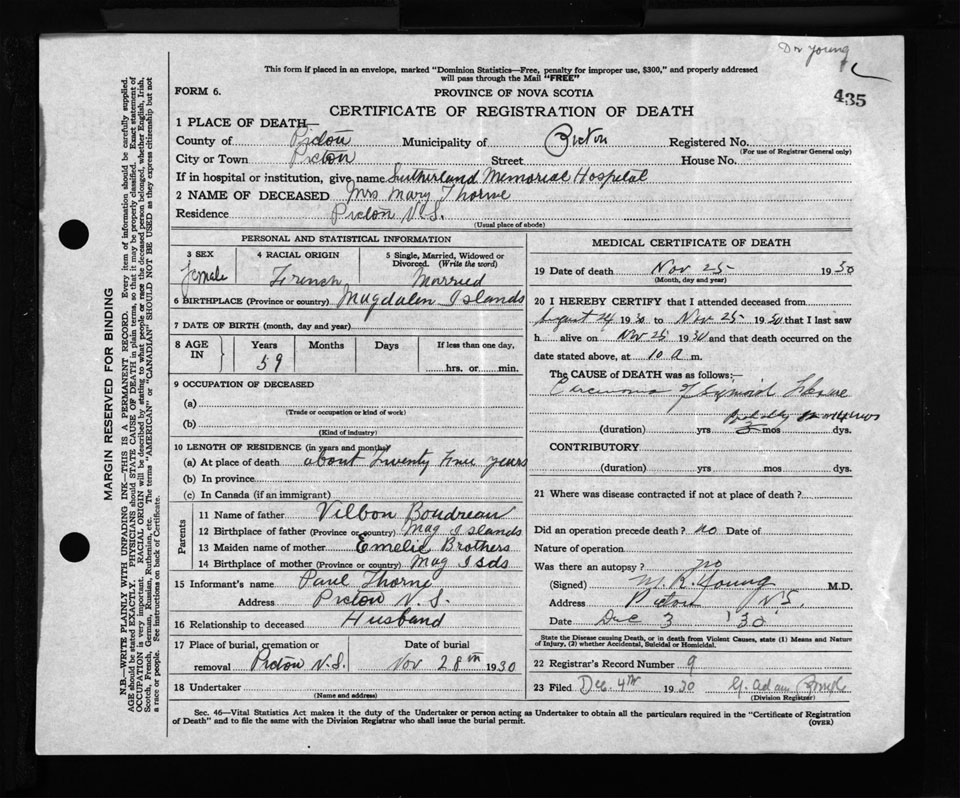 Dr Young
This form if placed in an envelope, marked "Dominion Statistics—Free, penalty for improper use, $300," and properly addressed
will pass through the Mail "FREE"
435
FORM 6.
PROVINCE OF NOVA SCOTIA
CERTIFICATE OF REGISTRATION OF DEATH
1 PLACE OF DEATH—
County of Pictou Municipality of Pictou Registered No.
(For use of Registrar General only)
City or Town Pictou Street House No.
If in hospital or institution, give name Sutherland Memorial Hospital
2 NAME OF DECEASED Mrs Mary Thorne
Residence Pictou N.S.
(Usual place of abode)
PERSONAL AND STATISTICAL INFORMATION
3 SEX
female
4 RACIAL ORIGIN
French
5 Single, Married, Widowed or
Divorced. (Write the word)
Married
6 BIRTHPLACE (Province or country) Magdalen Islands
7 DATE OF BIRTH (month, day and year)
8 AGE
IN
Years
59
Months
Days
If less than one day,
hrs. or min.
9 OCCUPATION OF DECEASED
(a)
(Trade or occupation or kind of work)
(b)
(Kind of industry)
10 LENGTH OF RESIDENCE (in years and months)
(a) At place of death about twenty years
(b) In province
(c) In Canada (if an immigrant)
Parents
11 Name of father Vilbon Boudreau
12 Birthplace of father (Province or country) Mag Islands
13 Maiden name of mother Emelie Brothers
14 Birthplace of mother (Province or country) Mag Isds
15 Informant's name Paul Thorne
Address Pictou N.S.
16 Relationship to deceased Husband
17 Place of burial, cremation or
removal Pictou N.S.
Date of burial
Nov 28th 1930
18 Undertaker
(Name and address)
MEDICAL CERTIFICATE OF DEATH
19 Date of death Nov 25 1930
(Month, day and year)
20 I HEREBY CERTIFY that I attended deceased from
August 24 1930 to Nov 25 1930 that I last saw
h alive on Nov 25 1930 and that death occurred on the
date stated above, at 10 a m.
The CAUSE of DEATH was as follows:—
Carcinoma of
Probably
(duration) yrs mos dys.
CONTRIBUTORY
(duration) yrs mos dys.
21 Where was disease contracted if not at place of death?
Did an operation precede death? no Date of
Nature of operation
Was there an autopsy? no
(Signed) M. R. Young M.D.
Address Pictou N.S.
Date Dec 3 '30
State the Disease causing Death, or in death from Violent Causes, state (1) Means and Nature
of Injury, (2) whether Accidental, Suicidal or Homicidal.
22 Registrar's Record Number 9
23 Filed Dec. 4th 1930 G. Adam
(Division Registrar)
Sec. 46—Vital Statistics Act makes it the duty of the Undertaker or person acting as Undertaker to obtain all the particulars required in the "Certificate of Registration
of Death" and to file the same with the Division Registrar who shall issue the burial permit.
(OVER)
MARGIN RESERVED FOR BINDING
N.B.—WRITE PLAINLY WITH UNFADING INK—THIS IS A PERMANENT RECORD. Every item of information should be carefully supplied.
AGE should be stated EXACTLY. PHYSICIANS should STATE CAUSE OF DEATH in plain terms, so that it may be properly classified. Exact statement of
OCCUPATION is very important. RACIAL ORIGIN will be described by stating to what people or race the deceased person belonged, whether English, Irish,
Scotch, French, German, Russian, Ruthenian, etc. The terms "AMERICAN" or "CANADIAN" SHOULD NOT BE USED as they express citizenship but not
a race or people. See instructions on back of Certificate.